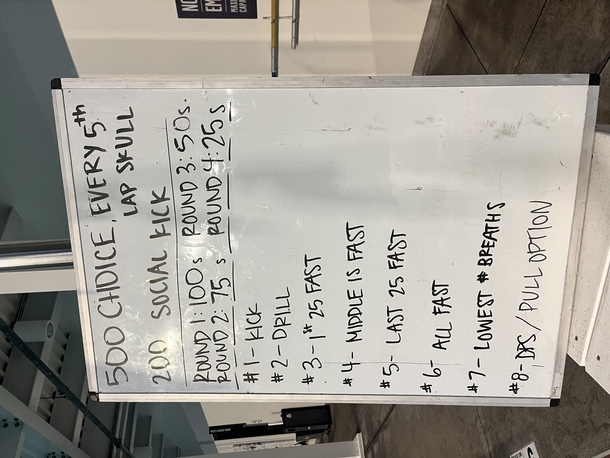 500 CHOICE, EVERY 5th
LAP SKULL
200 SOCIAL KICK
ROUND 1: 100s ROUND 3: 50s.
ROUND 2: 75 s ROUND 4: 25 s
#1 - KICK
#2 - DRILL
#3 - 1st 25 FAST
#4 - MIDDLE IS FAST
#5 - LAST 25 FAST
#6 - ALL FAST
#7 - LOWEST # BREATHS
#8 - DPS / PULL OPTION
NO
EM
MAXI
CAPA